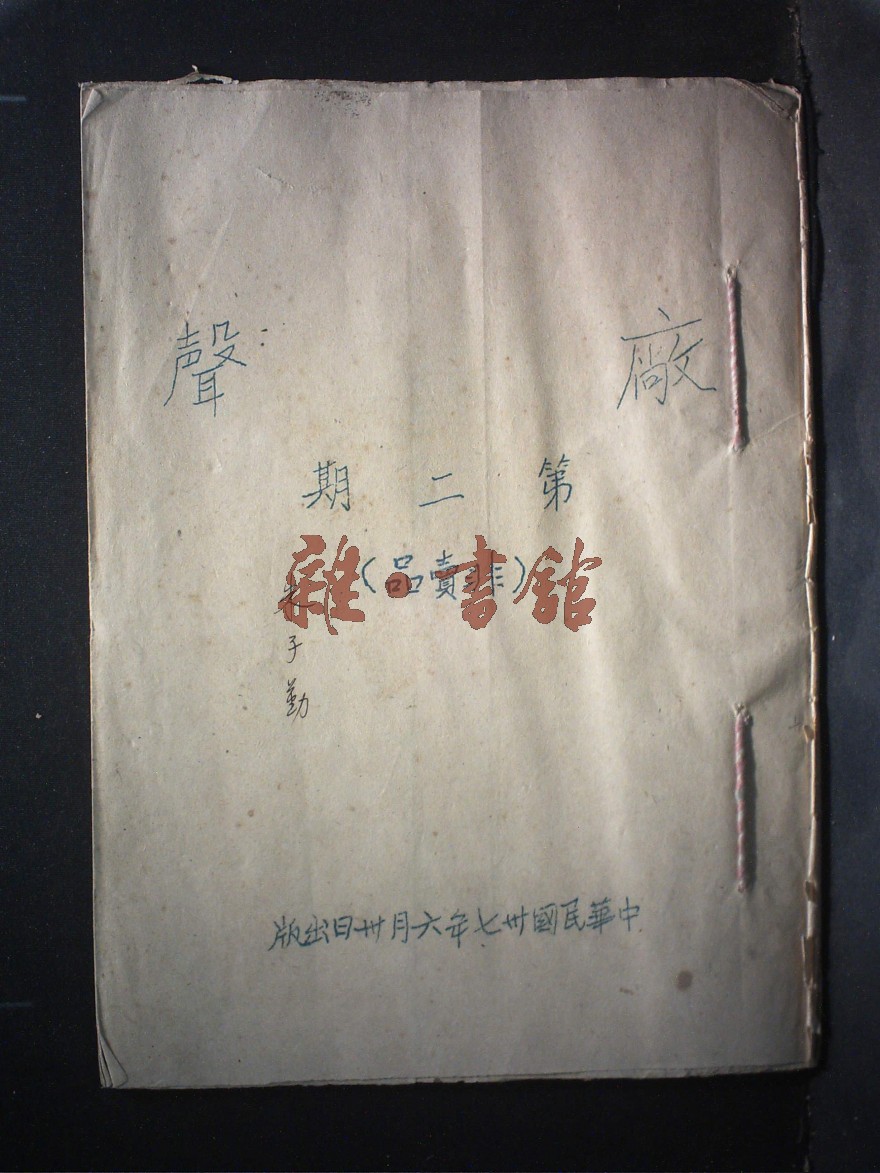 廠聲
第二期
(非賣品)
雜·書館
朱子勤
中華民國卅七年六月卅日出版